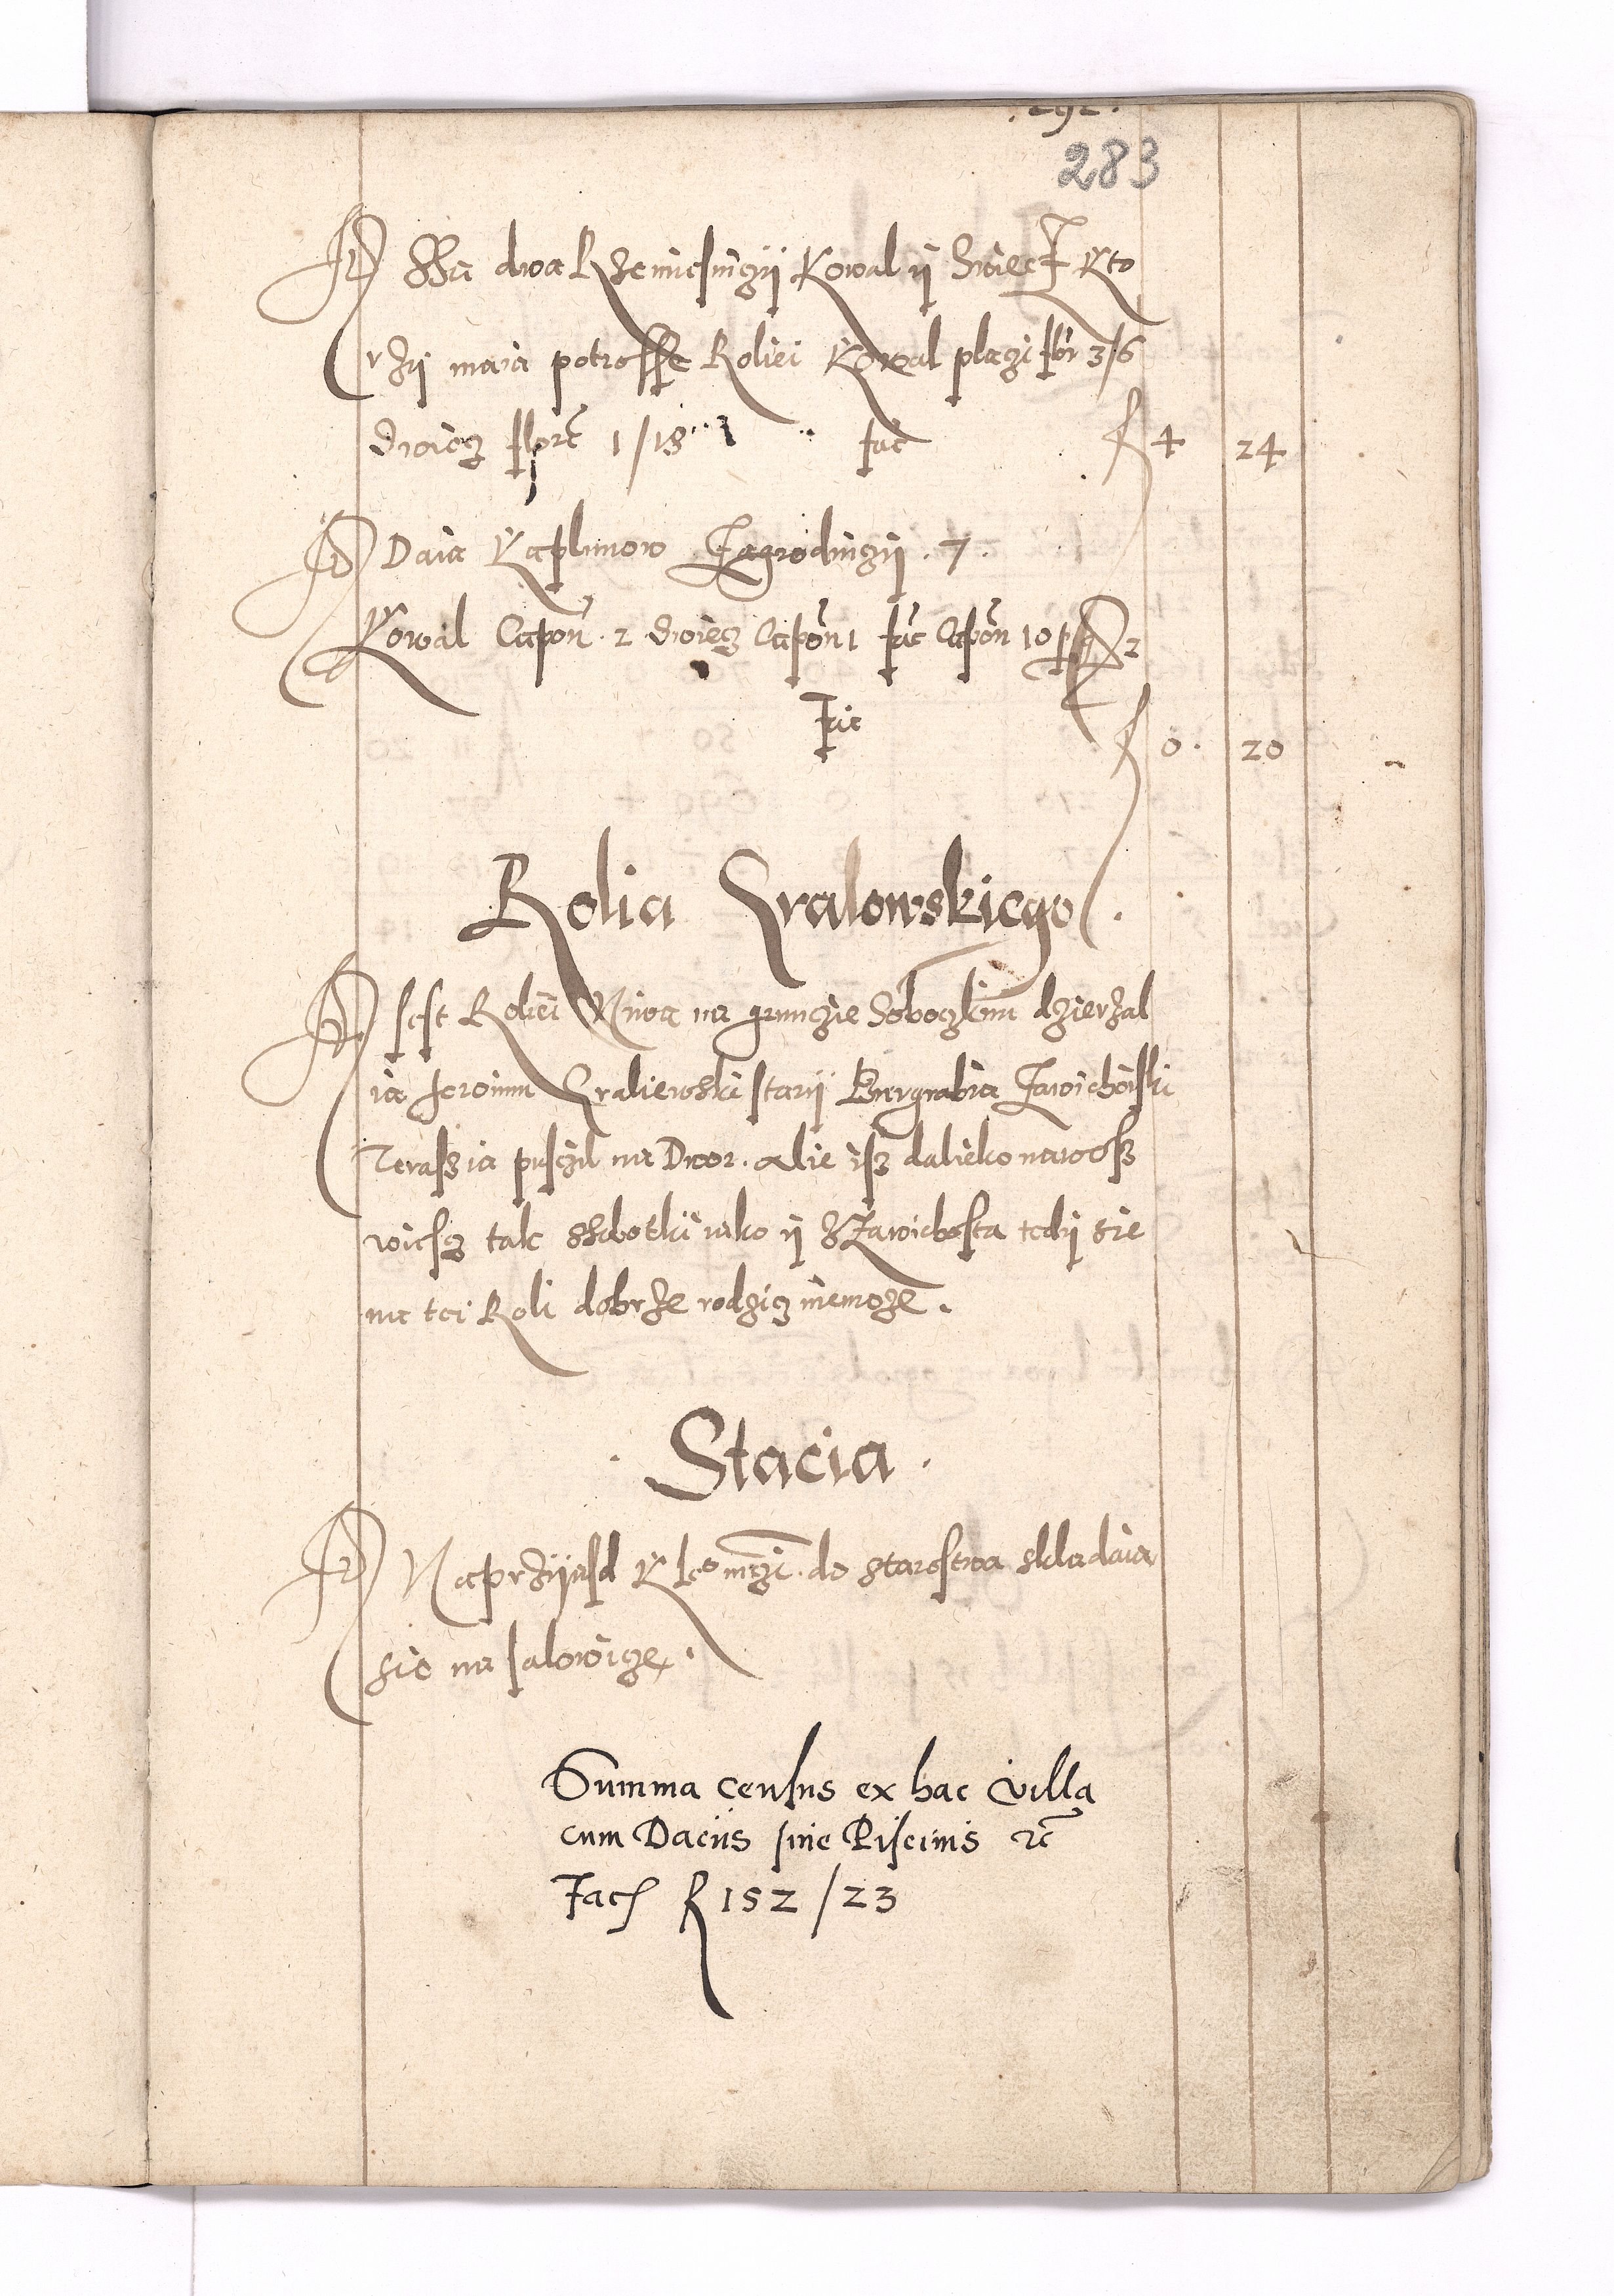 283
Itē Ssa dwa Rzemiesniczÿ Kowal ÿ Swiecz Kto
rzÿ maia potrosse Roliei Kowal placzi flor 3/6
Swiecz floren 1/18 fac f 4 24
Itē Daia Kaplunow Zagrodniczÿ . 7 .
Kowal Capon . 2 Swiecz Capon 1 fac Capon 10
fac f 0 . 20
Rolia Kralowskiego .
Itē Jest Roliei Niwa na grunczie Soboczkim dzierzal
ia Jeronim Kraliewski starÿ Burgrabia Zawichoiski
Terasz ia pusczil na Dwor . alie isz dalieko nawosz
wiesz tak Sobotki iako ÿ z Zawichosta tedÿ sie
na tei Roli dobrze rodzicz niemoze .
. Stacia .
Itē Naprzÿiasd K Je° mczi . do starostwa skladaia
sie na Jalowicze .
Summa census ex hac villa
cum Daciis sine Piscinis rc
Facit f 152 / 23